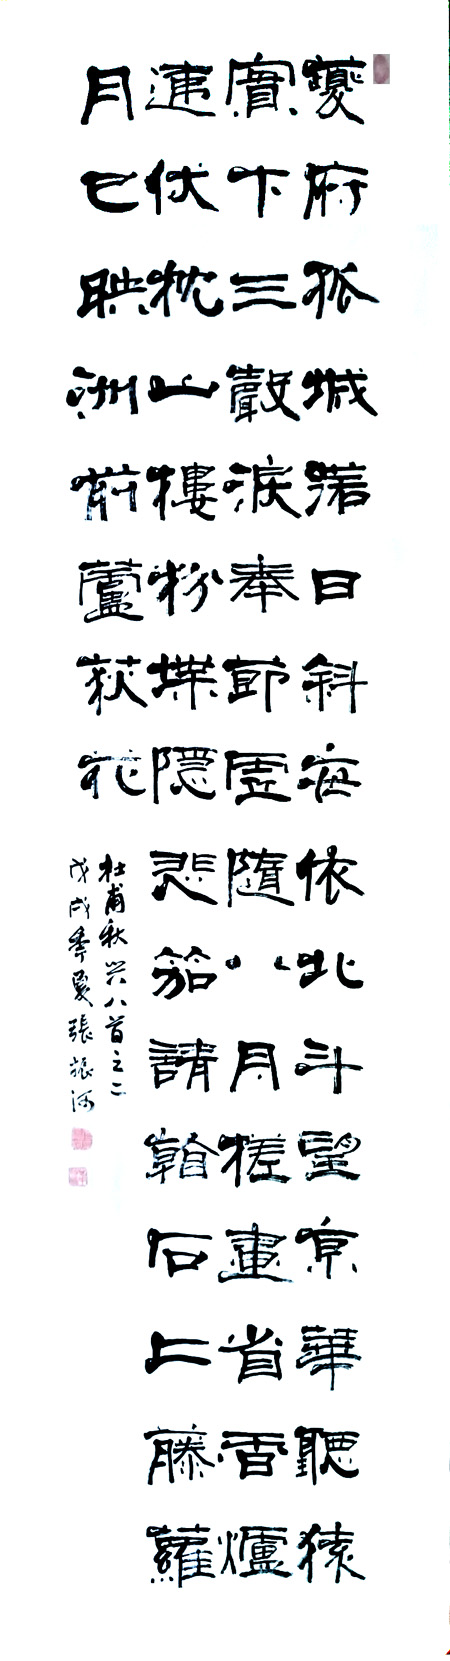 夔府孤城落日斜每依北斗望京華聽猿
實下三聲淚奉節虛隨八月槎畫省香爐
違伏枕山樓粉堞隱悲笳請看石上藤蘿
月已映洲前蘆荻花
杜甫秋兴八首之二
戊戌季夏張振河